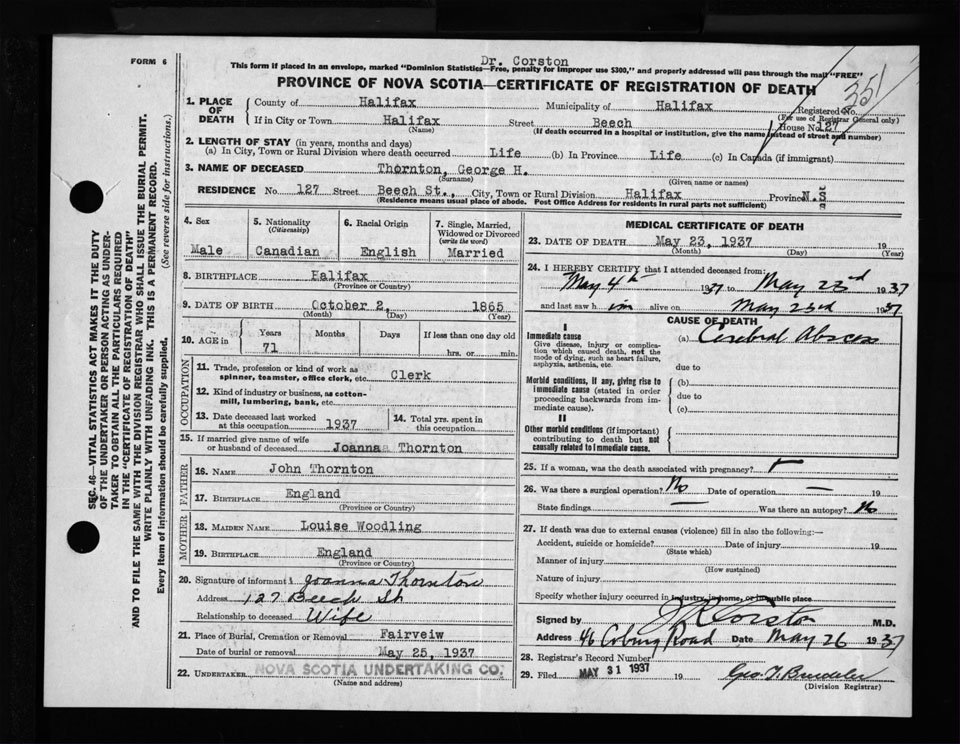 FORM 6
Dr. Corston
This form if placed in an envelope, marked "Dominion Statistics—Free, penalty for improper use $300," and properly addressed will pass through the mail "FREE"
PROVINCE OF NOVA SCOTIA—CERTIFICATE OF REGISTRATION OF DEATH
351
1. PLACE OF DEATH
County of Halifax Municipality of Halifax Registered No.
(For use of Registrar General only)
If in City or Town Halifax Street Beech House No. 127
(Name) (If death occurred in a hospital or institution, give the name instead of street and number)
2. LENGTH OF STAY (in years, months and days)
(a) In City, Town or Rural Division where death occurred Life (b) In Province Life (c) In Canada (if immigrant)
3. NAME OF DECEASED Thornton, George H.
(Surname) (Given name or names)
RESIDENCE No. 127 Street Beech St., City, Town or Rural Division Halifax Province N.S
(Residence means usual place of abode. Post Office Address for residents in rural parts not sufficient)
4. Sex Male
5. Nationality (Citizenship) Canadian
6. Racial Origin English
7. Single, Married, Widowed or Divorced (write the word) Married
8. BIRTHPLACE Halifax
(Province or Country)
9. DATE OF BIRTH October 2, 1865
(Month) (Day) (Year)
10. AGE in Years Months Days If less than one day old
71 hrs. or min.
OCCUPATION
11. Trade, profession or kind of work as spinner, teamster, office clerk, etc. Clerk
12. Kind of industry or business, as cotton-mill, lumbering, bank, etc.
13. Date deceased last worked at this occupation 1937
14. Total yrs. spent in this occupation
15. If married give name of wife or husband of deceased Joannaa Thornton
FATHER
16. NAME John Thornton
17. BIRTHPLACE England
(Province or Country)
MOTHER
18. MAIDEN NAME Louise Woodling
19. BIRTHPLACE England
(Province or Country)
20. Signature of informant Joanna Thornton
Address 127 Beech St
Relationship to deceased Wife
21. Place of Burial, Cremation or Removal Fairveiw
Date of burial or removal May 25, 1937
22. UNDERTAKER NOVA SCOTIA UNDERTAKING CO.
(Name and address)
MEDICAL CERTIFICATE OF DEATH
23. DATE OF DEATH May 23, 1937 19
(Month) (Day) (Year)
24. I HEREBY CERTIFY that I attended deceased from:
May 4th 1937 to May 23rd 1937
and last saw him alive on May 23rd 1937
CAUSE OF DEATH
I
Immediate cause
Give disease, injury or complication which caused death, not the mode of dying, such as heart failure, asphyxia, asthenia, etc.
(a) Cerebral Abscess
due to
Morbid conditions, if any, giving rise to immediate cause (stated in order proceeding backwards from immediate cause).
(b)
due to
(c)
II
Other morbid conditions (if important) contributing to death but not causally related to immediate cause.
25. If a woman, was the death associated with pregnancy?
26. Was there a surgical operation? No Date of operation — 19
State findings — Was there an autopsy? No
27. If death was due to external causes (violence) fill in also the following:—
Accident, suicide or homicide? Date of injury 19
(State which)
Manner of injury
(How sustained)
Nature of injury
Specify whether injury occurred in industry, in home, or in public place
Signed by J R Corston M.D.
Address 46 Coburg Road Date May 26 1937
28. Registrar's Record Number
29. Filed MAY 31 1937 19
(Division Registrar)
SEC. 46—VITAL STATISTICS ACT MAKES IT THE DUTY
OF THE UNDERTAKER OR PERSON ACTING AS UNDER-
TAKER TO OBTAIN ALL THE PARTICULARS REQUIRED
IN THE "CERTIFICATE OF REGISTRATION OF DEATH"
AND TO FILE THE SAME WITH THE DIVISION REGISTRAR WHO SHALL ISSUE THE BURIAL PERMIT.
WRITE PLAINLY WITH UNFADING INK. THIS IS A PERMANENT RECORD.
Every item of information should be carefully supplied. (See reverse side for instructions.)